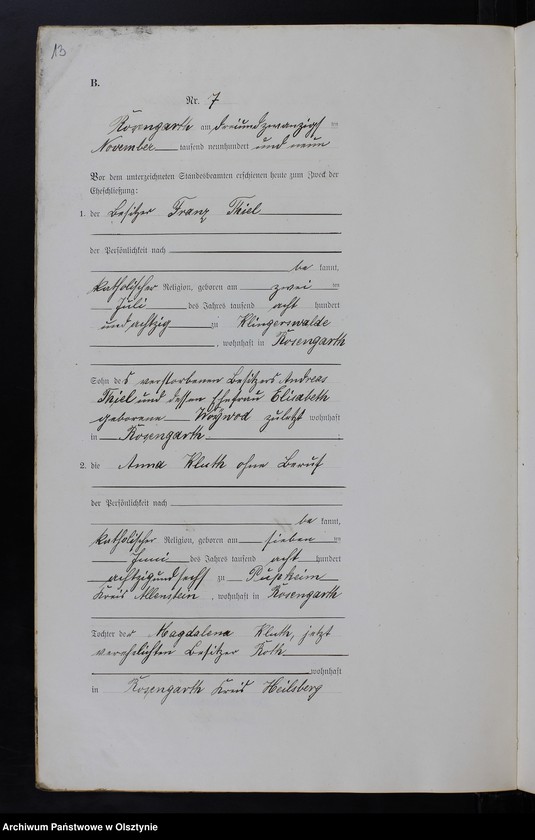 13
B.
Nr. 7
Rosengarth am dreiundzwanzigsten
November tausend neunhundert und neun
Vor dem unterzeichneten Standesbeamten erschienen heute zum Zweck der
Eheschließung:
1. der Besitzer Franz Thiel
der Persönlichkeit nach
be kannt,
katholischer Religion, geboren am zwei ten
Juli des Jahres tausend acht hundert
und achtzig zu Klingerswalde
, wohnhaft in Rosengarth
Sohn des verstorbenen Besitzers Andreas
Thiel und dessen Ehefrau Elisabeth
geborene Woywod zuletzt wohnhaft
in Rosengarth
2. die Anna Kluth ohne Beruf
der Persönlichkeit nach
be kannt,
katholischer Religion, geboren am sieben ten
Juni des Jahres tausend acht hundert
achtzigundsechs zu
Kreis Allenstein, wohnhaft in Rosengarth
Tochter der Magdalena Kluth, jetzt
verehelichten Besitzer Roth
wohnhaft
in Rosengarth Kreis Heilsberg
Archiwum Państwowe w Olsztynie